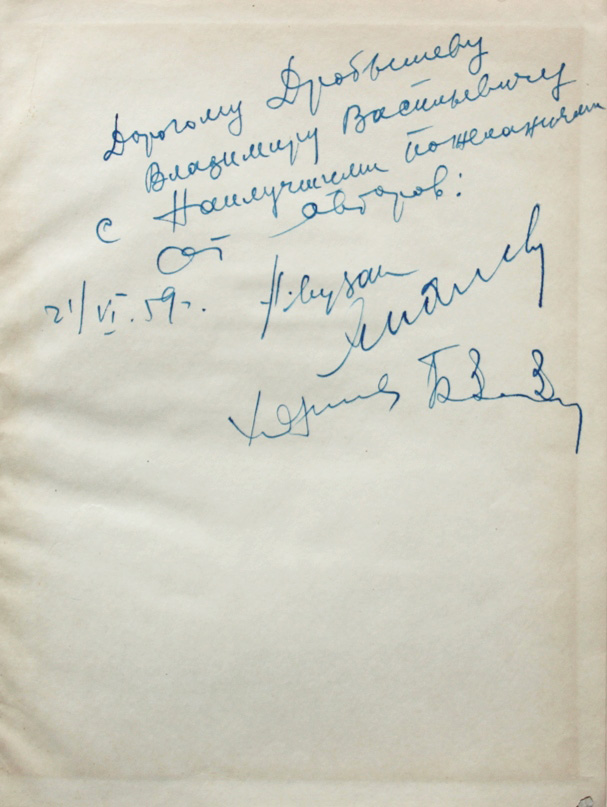 Дорогому Дробышеву
Владимиру Васильевичу
с Наилучшими пожеланиями
от авторов:
21/VI.59г.